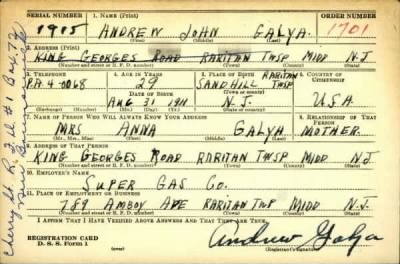 SERIAL NUMBER 1. NAME (Print) ORDER NUMBER
1915 ANDREW JOHN GALYA. 1701
(First) (Middle) (Last)
2. ADDRESS (Print)
KING GEORGES ROAD RARITAN TWSP MIDD N.J.
(Number and street or R. F. D. number) (Town) (County) (State)
3. TELEPHONE 4. AGE IN YEARS 5. PLACE OF BIRTH 6. COUNTRY OF CITIZENSHIP
P.A. 4-0068 29 RARITAN TWSP
SAND HILL
DATE OF BIRTH
AUG 31 1911 N.J. U.S.A.
(Exchange) (Number) (Mo.) (Day) (Yr.) (State or country)
7. NAME OF PERSON WHO WILL ALWAYS KNOW YOUR ADDRESS 8. RELATIONSHIP OF THAT PERSON
MRS ANNA GALYA MOTHER.
(Mr., Mrs., Miss) (First) (Middle) (Last)
9. ADDRESS OF THAT PERSON
KING GEORGES ROAD RARITAN TWSP MIDD N.J
(Number and street or R. F. D. number) (Town) (County) (State)
10. EMPLOYER'S NAME
SUPER GAS CO.
11. PLACE OF EMPLOYMENT OR BUSINESS
789 AMBOY AVE RARITAN TWP MIDD N.J.
(Number and street or R. F. D. number) (Town) (County) (State)
I AFFIRM THAT I HAVE VERIFIED ABOVE ANSWERS AND THAT THEY ARE TRUE.
REGISTRATION CARD
D. S. S. Form 1 Andrew Galya
(Registrant's signature)
Cherry St. R. #1 Box 72